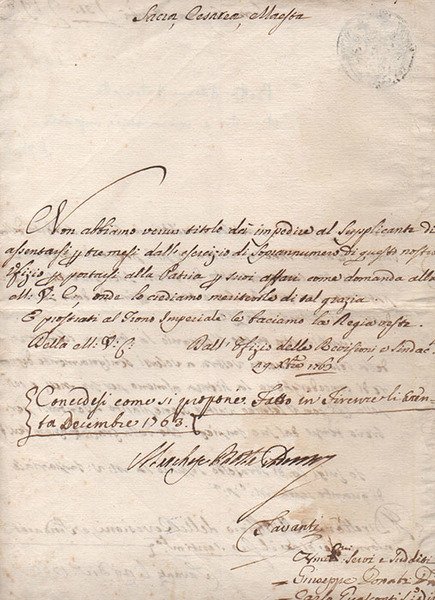 Sacra, Cesarea, Maestà
Non abbiamo verun titolo da impedire al Supplicante di
assentarsi p tre mesi dall'esercizio di Sopannumero di questo nostro
Ufizio p portarsi alla Patria p suoi affari come domanda alla
M: V: C: onde lo crediamo meritevole di tal grazia.
E prostrati al Trono Imperiale le baciamo la Regia veste.
Della M: V: C: Dall' Ufizio delle Revisioni e Sindac
29 Xbre 1763
Concedesi come si propone. Fatto in Firenze li tren-
ta Decembre 1763.
Marchese
Tavanti
Umil Servi e Sudditi
Giuseppe Donati